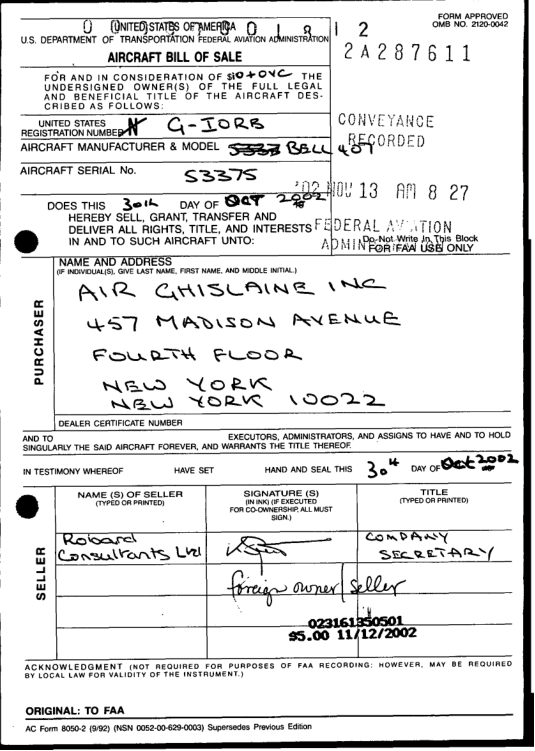 FORM APPROVED
OMB NO. 2120-0042
UNITED STATES OF AMERICA
U.S. DEPARTMENT OF TRANSPORTATION FEDERAL AVIATION ADMINISTRATION
0 0 1 8 1 2
2A287611
AIRCRAFT BILL OF SALE
FOR AND IN CONSIDERATION OF $10+OVC THE
UNDERSIGNED OWNER(S) OF THE FULL LEGAL
AND BENEFICIAL TITLE OF THE AIRCRAFT DES-
CRIBED AS FOLLOWS:
UNITED STATES
REGISTRATION NUMBER N G-IORB
CONVEYANCE
RECORDED
AIRCRAFT MANUFACTURER & MODEL BELL 407
AIRCRAFT SERIAL No. 53375
'02 NOV 13 AM 8 27
DOES THIS 30th DAY OF OCT 2002
HEREBY SELL, GRANT, TRANSFER AND
DELIVER ALL RIGHTS, TITLE, AND INTERESTS
IN AND TO SUCH AIRCRAFT UNTO:
FEDERAL AVIATION
ADMIN
Do Not Write In This Block
FOR FAA USE ONLY
PURCHASER
NAME AND ADDRESS
(IF INDIVIDUAL(S), GIVE LAST NAME, FIRST NAME, AND MIDDLE INITIAL.)
AIR GHISLAINE INC
457 MADISON AVENUE
FOURTH FLOOR
NEW YORK
NEW YORK 10022
DEALER CERTIFICATE NUMBER
AND TO EXECUTORS, ADMINISTRATORS, AND ASSIGNS TO HAVE AND TO HOLD
SINGULARLY THE SAID AIRCRAFT FOREVER, AND WARRANTS THE TITLE THEREOF.
IN TESTIMONY WHEREOF HAVE SET HAND AND SEAL THIS 30th DAY OF Oct 2002
SELLER
NAME (S) OF SELLER
(TYPED OR PRINTED)
SIGNATURE (S)
(IN INK) (IF EXECUTED
FOR CO-OWNERSHIP, ALL MUST
SIGN.)
TITLE
(TYPED OR PRINTED)
Robard
Consultants Ltd
COMPANY
SECRETARY
foreign owner/seller
023161350501
$5.00 11/12/2002
ACKNOWLEDGMENT (NOT REQUIRED FOR PURPOSES OF FAA RECORDING: HOWEVER, MAY BE REQUIRED
BY LOCAL LAW FOR VALIDITY OF THE INSTRUMENT.)
ORIGINAL: TO FAA
AC Form 8050-2 (9/92) (NSN 0052-00-629-0003) Supersedes Previous Edition